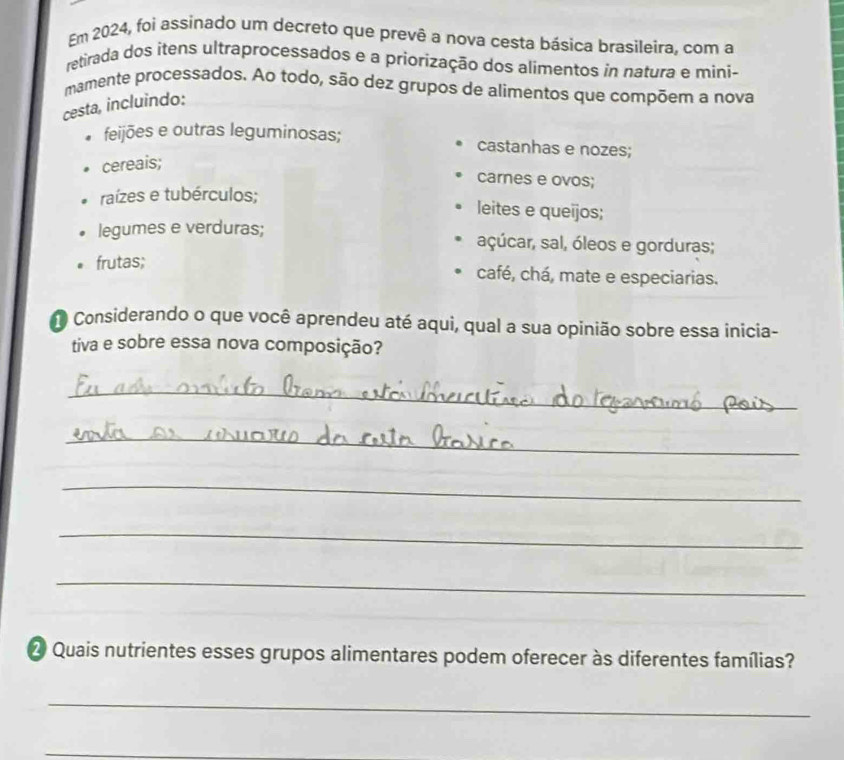 Em 2024, foi assinado um decreto que prevê a nova cesta básica brasileira, com a
retirada dos itens ultraprocessados e a priorização dos alimentos in natura e mini-
mamente processados. Ao todo, são dez grupos de alimentos que compõem a nova
cesta, incluindo:
• feijões e outras leguminosas;
• cereais;
• raízes e tubérculos;
• legumes e verduras;
• frutas;
• castanhas e nozes;
• carnes e ovos;
• leites e queijos;
• açúcar, sal, óleos e gorduras;
• café, chá, mate e especiarias.
1 Considerando o que você aprendeu até aqui, qual a sua opinião sobre essa inicia-
tiva e sobre essa nova composição?
Eu do pois
os da cesta
2 Quais nutrientes esses grupos alimentares podem oferecer às diferentes famílias?